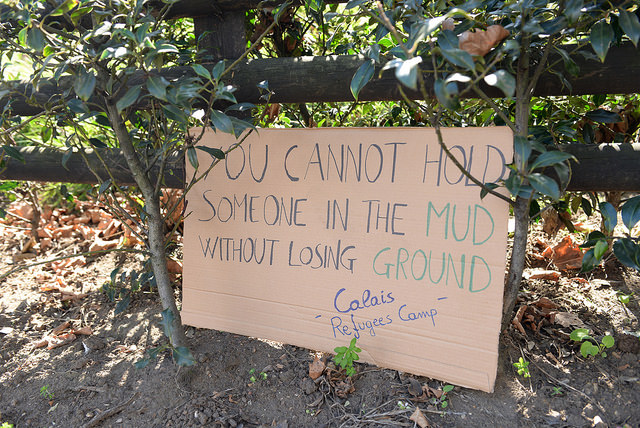 YOU CANNOT HOLD
SOMEONE IN THE MUD
WITHOUT LOSING GROUND
Calais
- Refugees Camp -